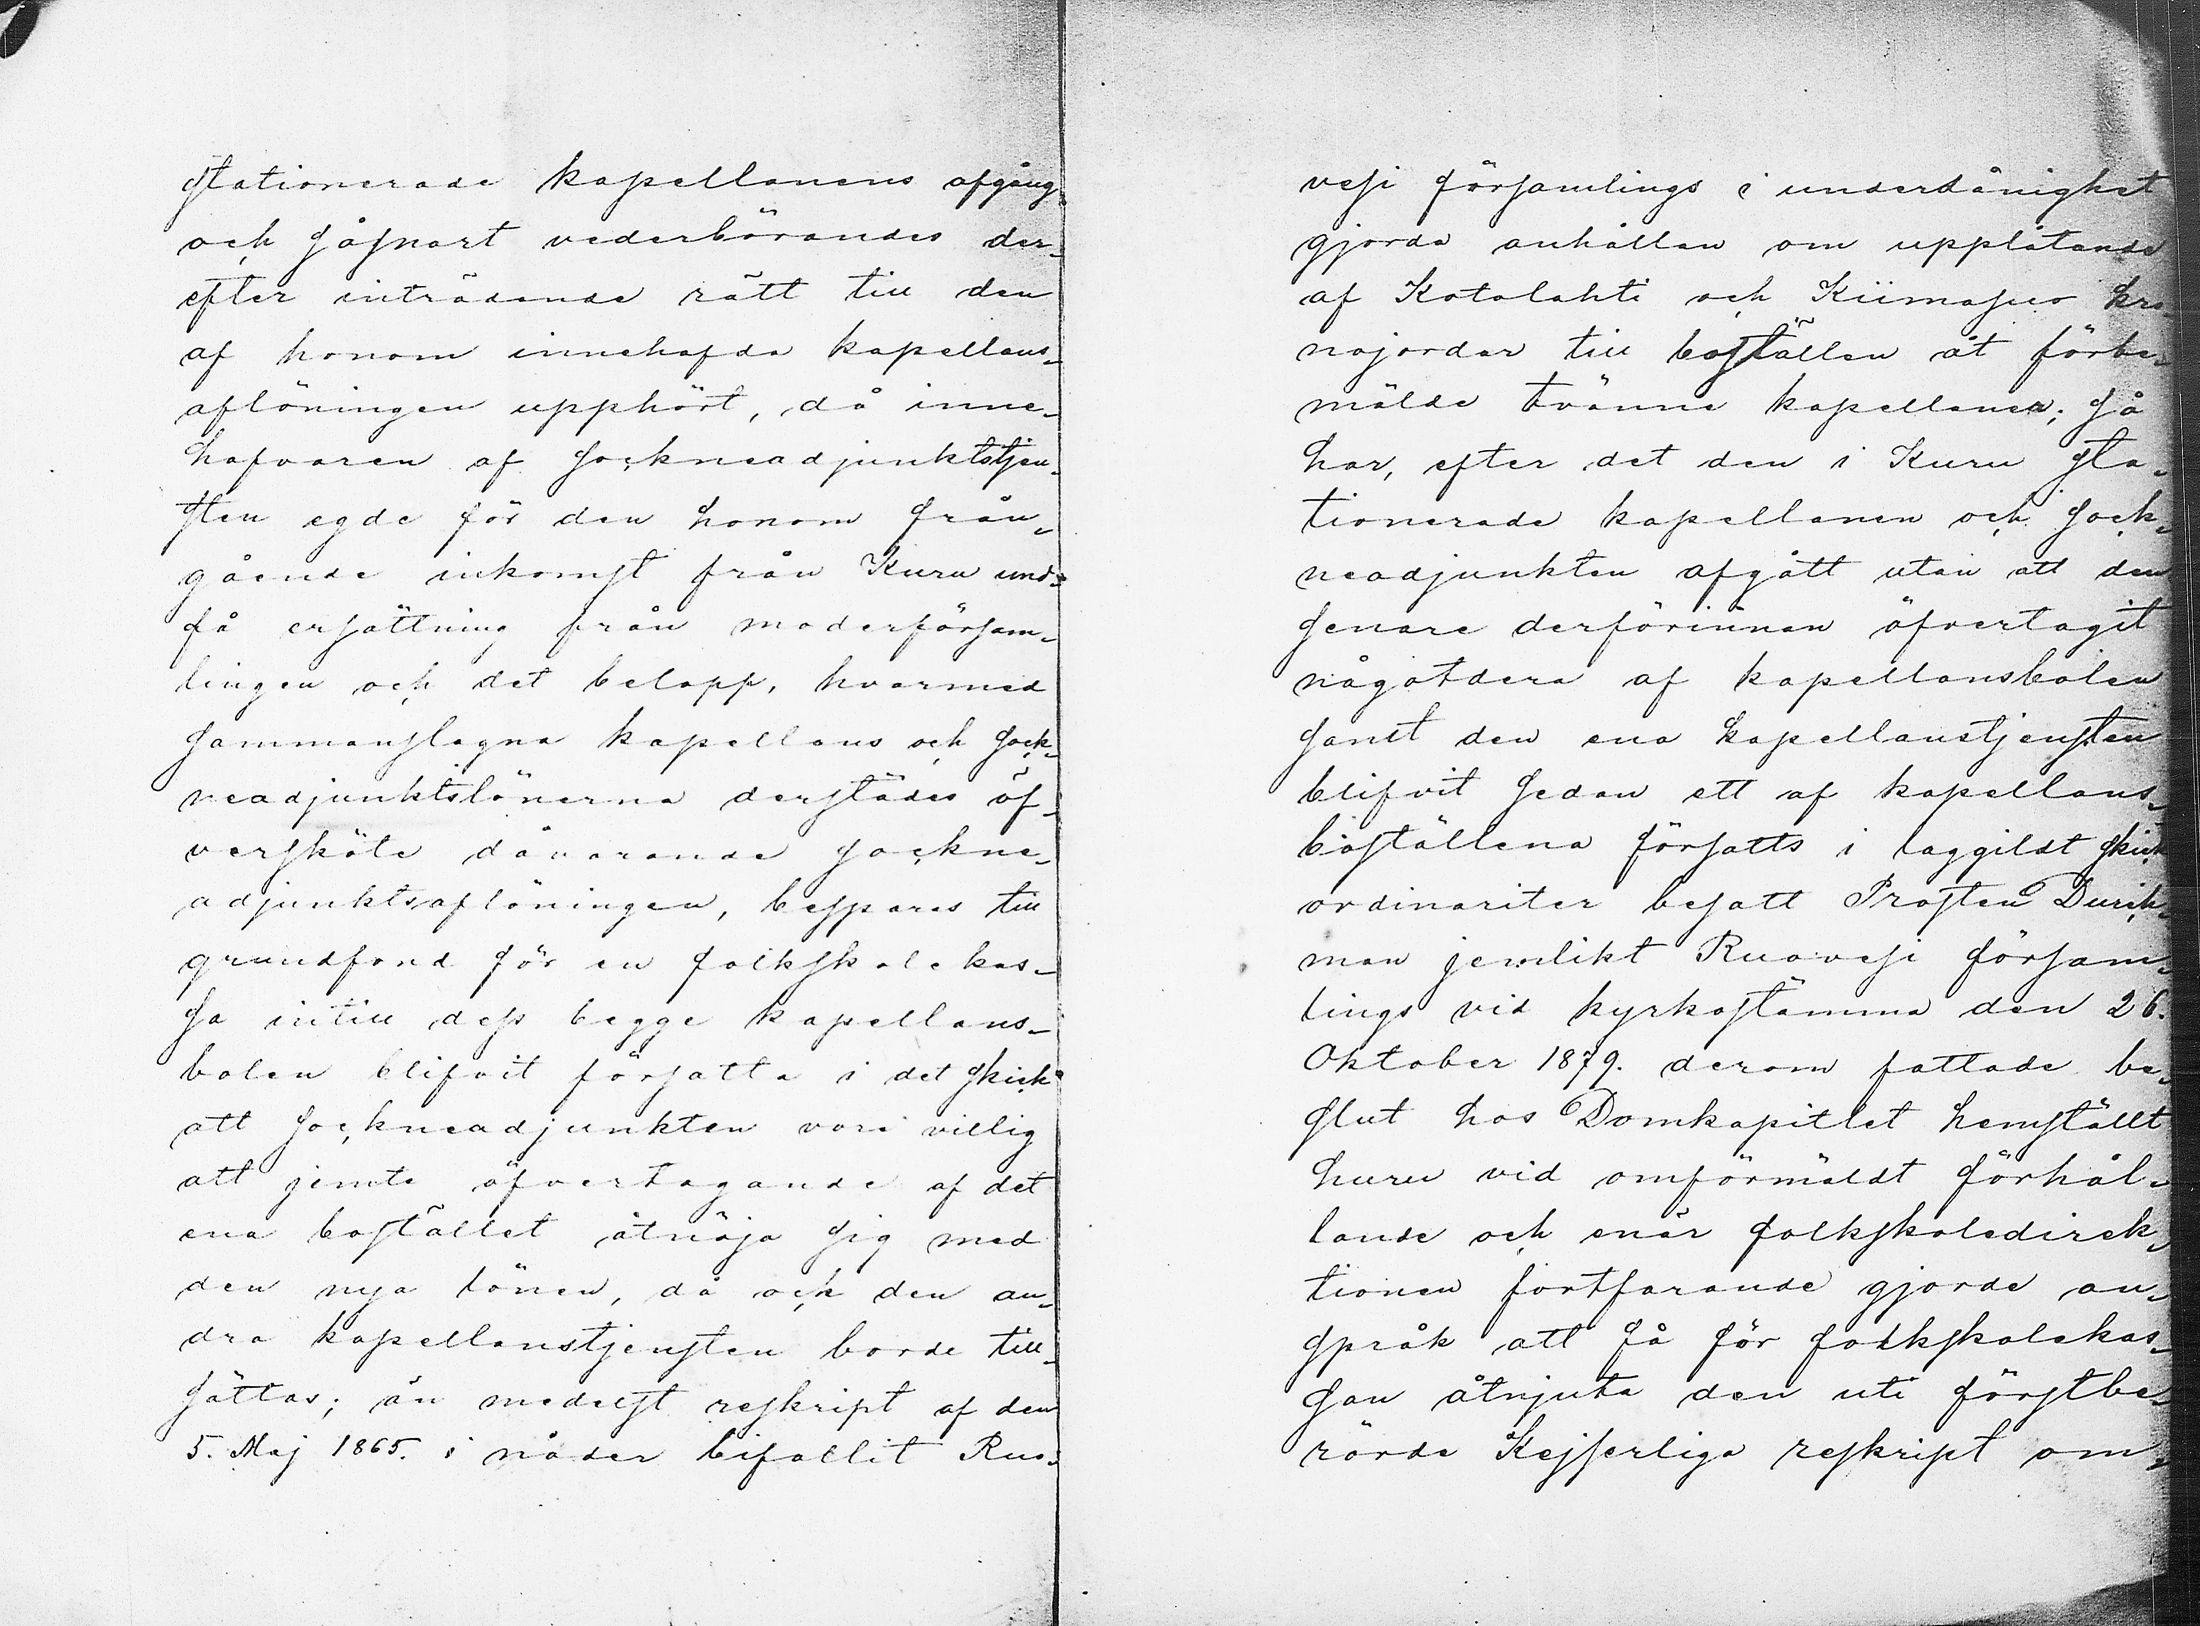 stationerade kapellanens afgång
och såsnart vederbörandes der-
efter inträdande rätt till den
af honom innehafda kapellans-
aflöningen upphört, då inne-
hafvaren af sockneadjunktstjen-
sten egde för den honom från-
gående inkomst från Kuru und-
få ersättning från moderförsam-
lingen och det belopp, hvarmed
sammanslagna kapellans och sock-
neadjunktslönerna derstädes öf-
versköte dåvarande sockne-
adjunktsaflöningen, bespares till
grundfond för en folkskolekas-
sa intill dess begge kapellans-
bolen blifvit försatta i det skick
att sockneadjunkten vore villig
att jemte öfvertagande af det
ena bostället åtnöja sig med
den nya lönen, då och den an-
dra kapellanstjensten borde till-
sättas; än medelst reskript af den
5. Maj 1865. i nåder bifallit Ruo-
vesi församlings i underdånighet
gjorda anhållan om upplåtande
af Kotalahti och Kiimasuo kro-
nojordar till boställen åt förbe-
mälde tvänne kapellaner; så
har, efter det den i Kuru sta-
tionerade kapellanen och sock-
neadjunkten afgått utan att den
senare derförinnan öfvertagit
någotdera af kapellansbolen
samt den ena kapellanstjensten
blifvit sedan ett af kapellans-
boställena försatts i laggildt skick
ordinariter besatt Prosten Durch-
man jemlikt Ruovesi försam-
lings vid kyrkostämma den 26.
Oktober 1879. derom fattade be-
slut hos Domkapitlet hemställt
huru vid omförmäldt förhål-
lande och enär folkskoledirek-
tionen fortfarande gjorde an-
språk att få för folkskolekas-
san åtnjuta den uti förstbe-
rörde Kejserliga reskript om-